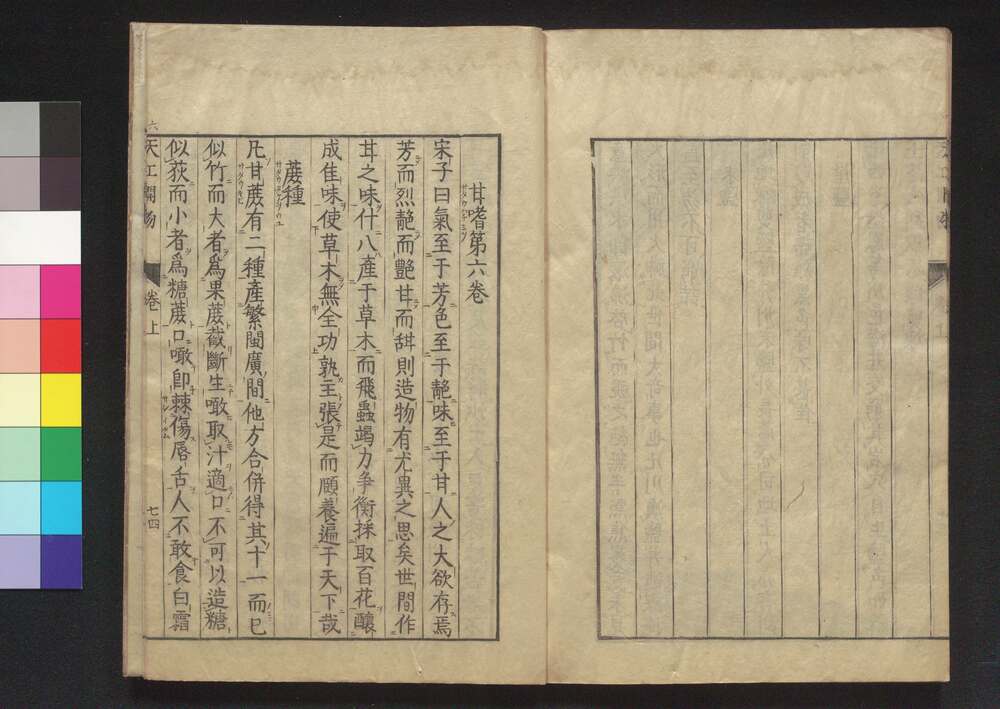 甘嗜第六卷
宋子曰氣至于芳色至于靘味至于甘人之大欲存焉
芳而烈靘而艷甘而甛則造物有尤異之思矣世間作
甘之味什八產于草木而飛蟲竭力争衡採取百花釀
成佳味使草木無全功孰主張是而頤養遍于天下哉
蔗種
凡甘蔗有二種產繁閩廣間他方合併得其十一而已
似竹而大者爲果蔗截斷生噉取汁適口不可以造糖
似荻而小者爲糖蔗口噉卽棘傷唇舌人不敢食白霜
天工開物
卷上
七四